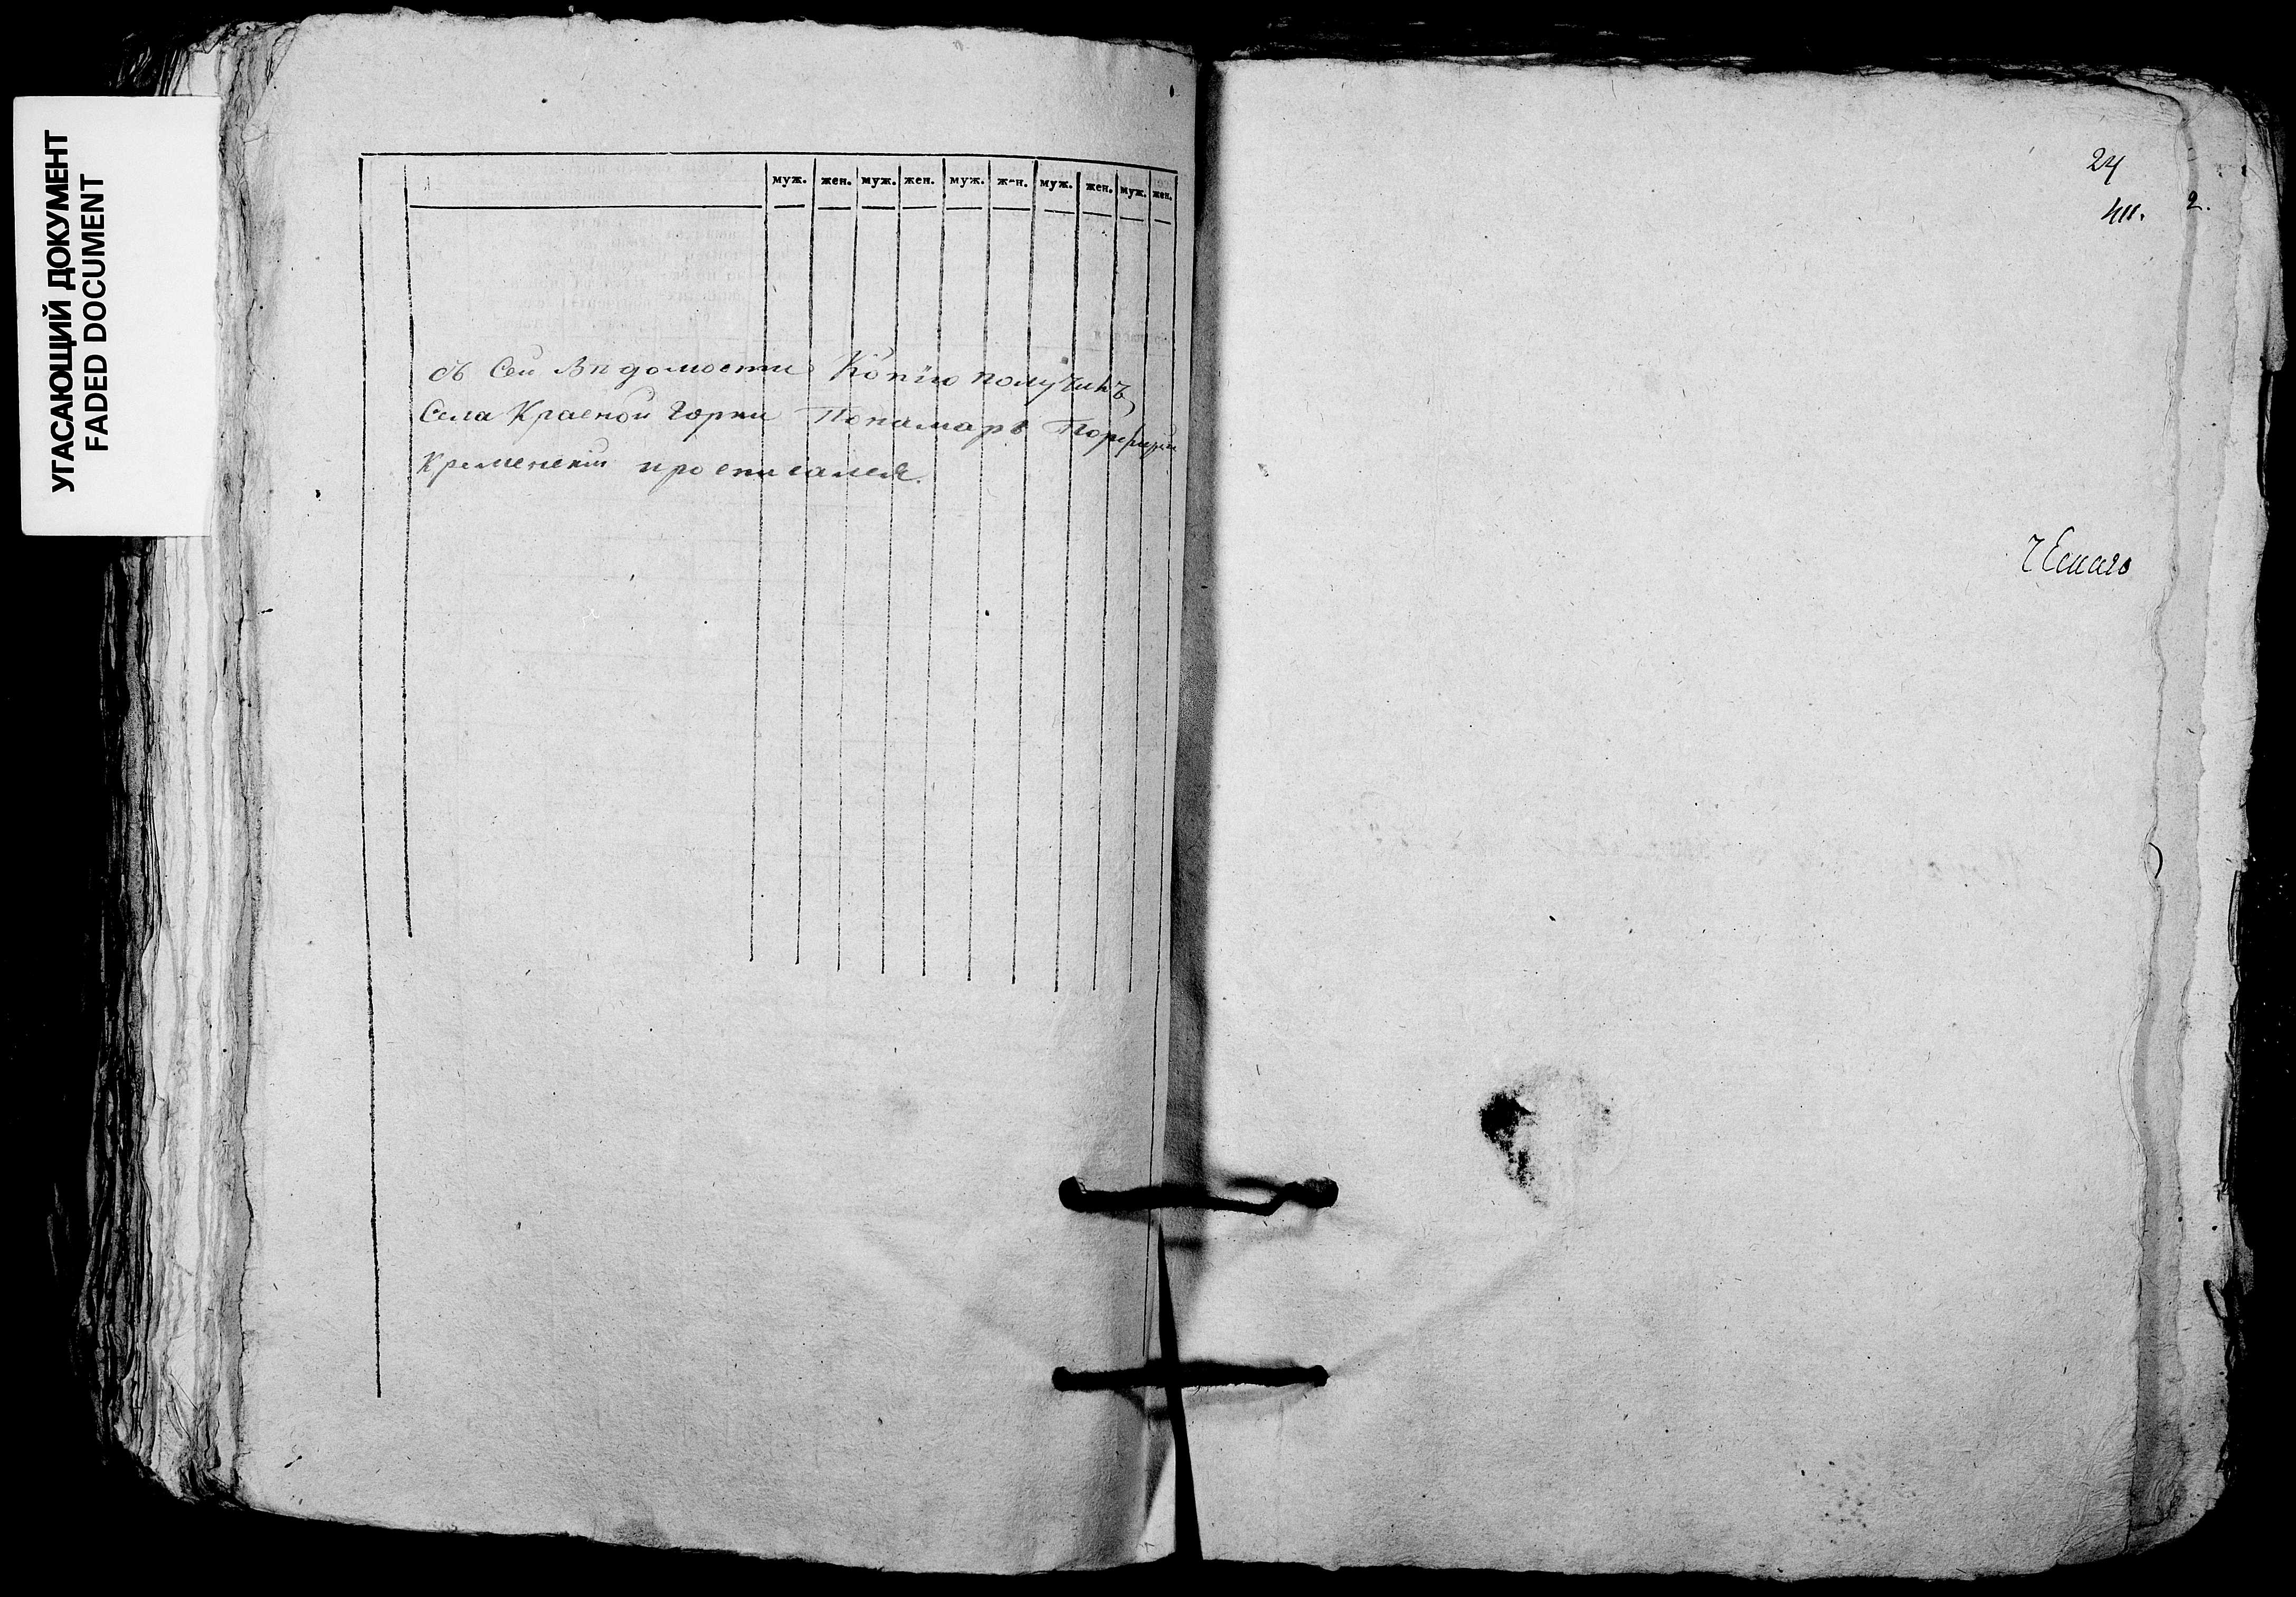 УГАСАЮЩИЙ ДОКУМЕНТ
FADED DOCUMENT
муж. жен. муж. жен. муж. жен. муж. жен. муж. жен.
Съ Сей Вѣдомости Копїю получилъ
Села Красной Горки Понамарь Порфирий
Кременскїй просписался.
24
411.
2.